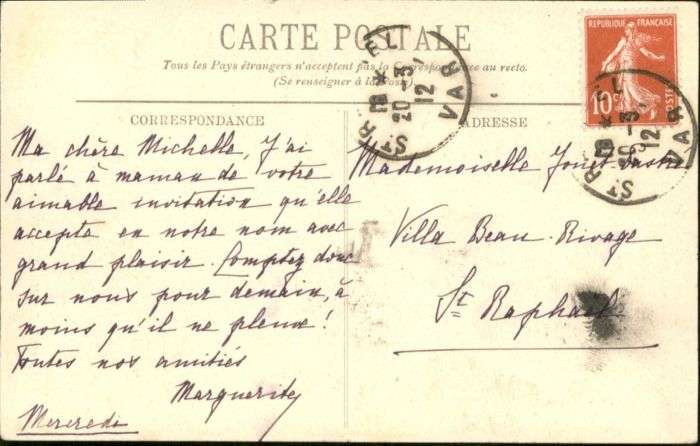 CARTE POSTALE
Tous les Pays étrangers n'acceptent pas la Correspondance au recto.
(Se renseigner à la Poste)
CORRESPONDANCE
Ma chère Michelle, J'ai
parlé à maman de votre
aimable invitation qu'elle
accepte en notre nom avec
grand plaisir. Comptez donc
sur nous pour demain, à
moins qu'il ne pleuve!
Toutes nos amitiés
Marguerite
Mercredi
ADRESSE
Mademoiselle
Villa Beau-Rivage
St Raphael
REPUBLIQUE FRANÇAISE
10c
POSTES
ST R EL
20-3
12
VAR
ST R EL
20-3
12
VAR